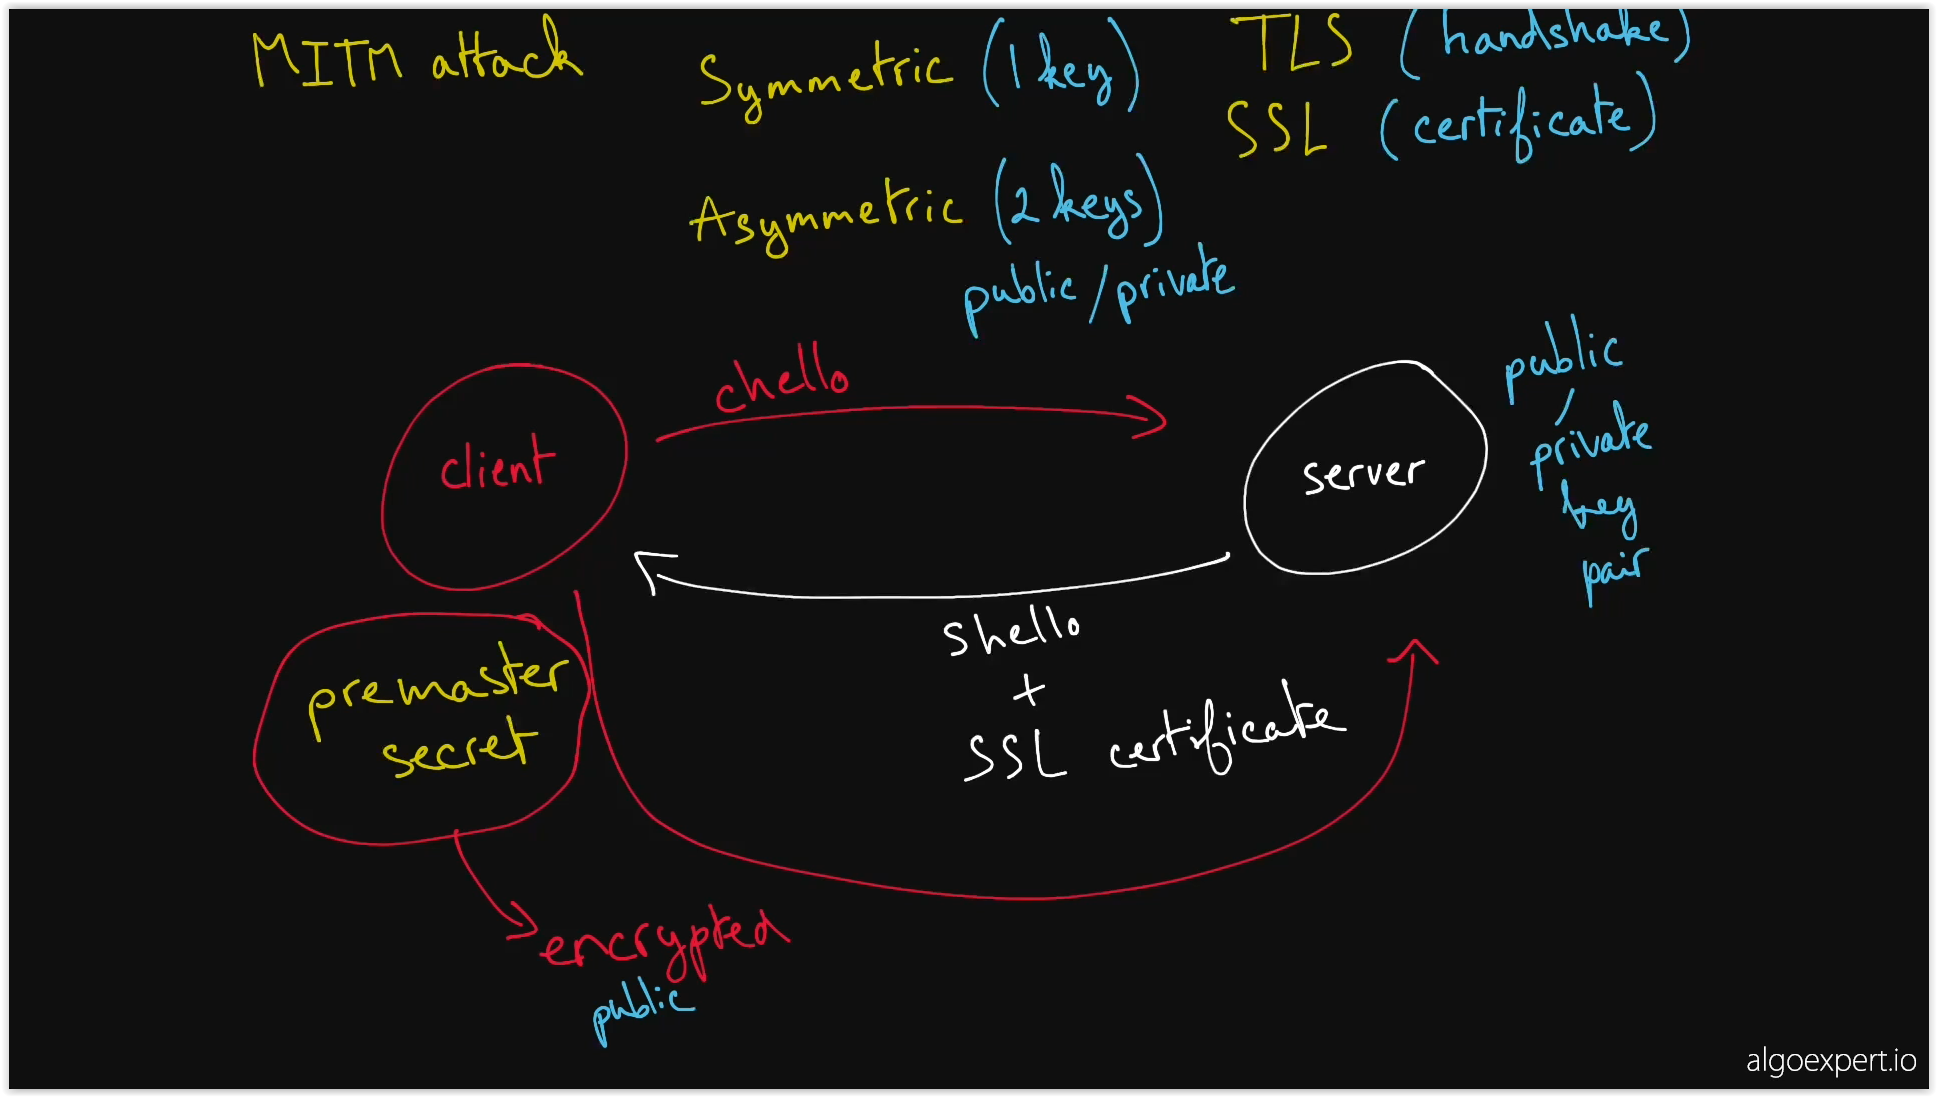 MITM attack
Symmetric (1 key)
Asymmetric (2 keys)
public / private
TLS (handshake)
SSL (certificate)
client
chello
server
public
/
private
key
pair
shello
+
SSL certificate
premaster
secret
encrypted
public
algoexpert.io